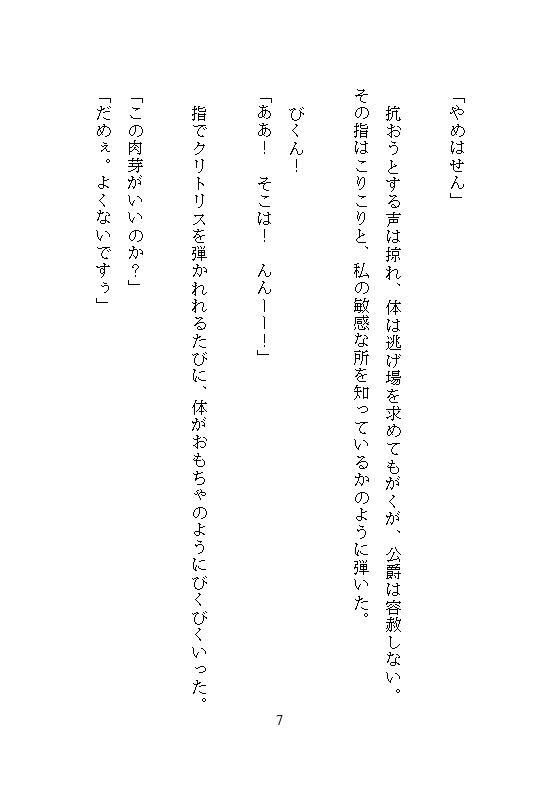 「やめはせん」
抗おうとする声は掠れ、体は逃げ場を求めてもがくが、公爵は容赦しない。
その指はこりこりと、私の敏感な所を知っているかのように弾いた。
びくん！
「ああ！　そこは！　んんーー！」
指でクリトリスを弾かれれるたびに、体がおもちゃのようにびくびくいった。
「この肉芽がいいのか？」
「だめぇ。よくないですぅ」
7